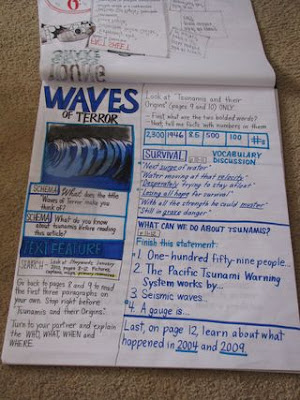 WAVES
OF TERROR
SCHEMA What does the title
Waves of Terror make you
think of?
SCHEMA What do you know
about tsunamis before reading
this article?
TEXT FEATURE
SEARCH - Look at
pages 8-12. Pictures,
Go back to pages 8 and 9 to read
the first three paragraphs on
your own. Stop right before
"Tsunamis and their Origins".
Turn to your partner and explain
the WHO, WHAT, WHEN and
WHERE.
Look at "Tsunamis and their
Origins" (pages 9 and 10) ONLY.
- First, what are the two bolded words?
- Then, tell me facts with numbers in them
2,300 1946 8.5 500 100 #Fs
SURVIVAL VOCABULARY
DISCUSSION
"Next surge of water"
"Water moving at that velocity"
"Desperately trying to stay afloat"
"Losing all hope for survival"
"With all the strength he could muster"
"Still in grave danger"
WHAT CAN WE DO ABOUT TSUNAMIS?
Finish this statement:
1. One-hundred fifty-nine people...
2. The Pacific Tsunami Warning
System works by...
3. Seismic waves...
4. A gauge is...
Last, on page 12, learn about what
happened in 2004 and 2009.